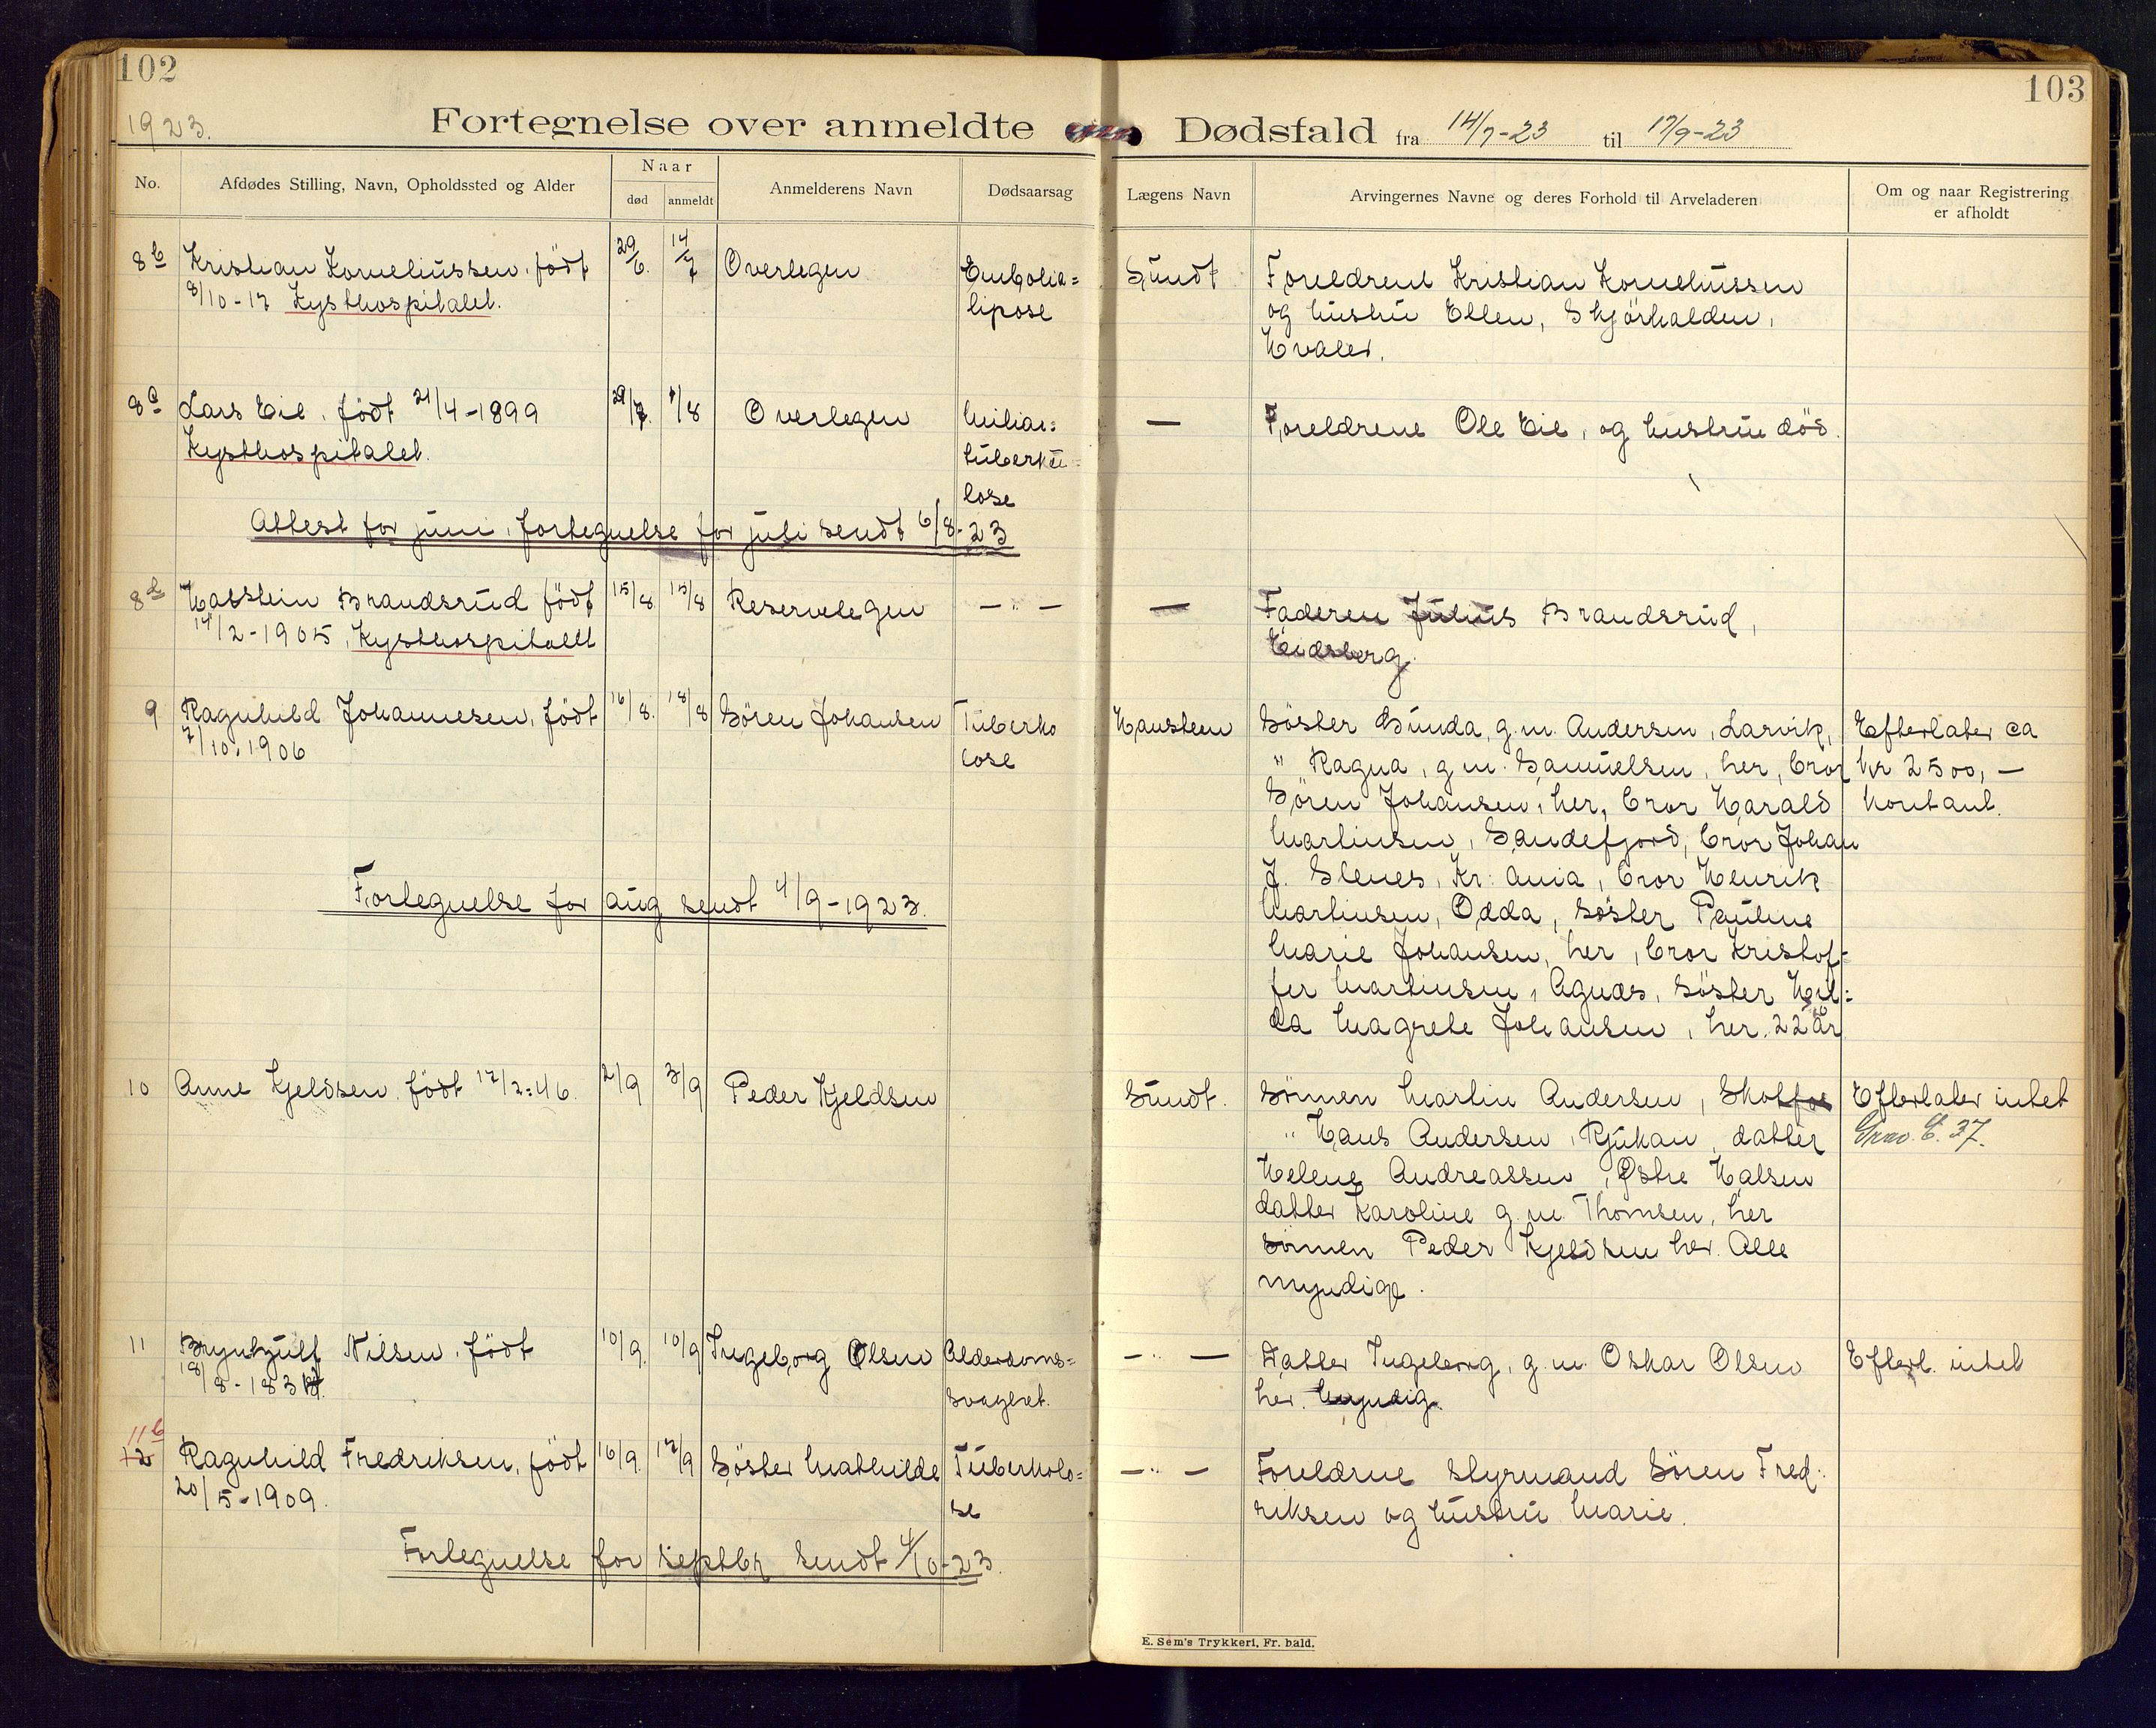 102
1923.
Fortegnelse over anmeldte
No.
Afdødes Stilling, Navn, Opholdssted og Alder
Naar
død
anmeldt
Anmelderens Navn
Dødsaarsag
8b Kristian Korneliussen, født 29/6. 14/7 Overlegen Embolia=
8/10-17 Kysthospitalet. lipose
8c Lars Eie, født 21/4-1899 29/7. 1/8 Overlegen Miliær=
Kysthospitalet. tuberku=
lose
Attest for juni, fortegnelse for juli sendt 6/8-23
8d Halstein Brandsrud født 15/8 15/8 Reservelegen — " —
14/2-1905, Kysthospitalet
9 Ragnhild Johannesen, født 16/8. 18/8 Søren Johansen Tuberko
7/10.1906 lose
Fortegnelse for aug sendt 4/9-1923.
10 Anne Kjeldsen, født 17/2:46. 2/9 3/9 Peder Kjeldsen
11 Brynhjulf Nilsen, født 10/9. 10/9 Ingeborg Olsen Alderdoms=
18/8-183 svaghet.
11b
12 Ragnhild Fredriksen, født 16/9. 17/9 Søster Mathilde Tuberkolo=
20/5-1909. se
Fortegnelse for septbr sendt 4/10-23.
103
Dødsfald fra 14/7-23 til 17/9-23
Lægens Navn
Arvingernes Navne og deres Forhold til Arveladeren
Om og naar Registrering
er afholdt
Sundt Foreldrene Kristian Korneliussen
og hustru Ellen, Skjørhalden,
Hvaler.
— Foreldrene Ole Eie, og hustru død.
— Faderen Julius Brandsrud,
Eidsberg.
Hansteen Søster Gunda, g.m. Andersen, Larvik, Efterlater ca
" Ragna, g.m. Samuelsen, her, bror kr 2500,—
Søren Johansen, her, bror Harald kontant.
Martinsen, Sandefjord, bror Johan
J. Stenes, Kr: ania, bror Henrik
Martinsen, Odda, søster Pauline
Marie Johansen, her, bror Kristof=
fer Martinsen, Agnes, søster Hil=
da Magrete Johansen, her. 22 år
Sundt. Sønnen Martin Andersen, Skotfos Efterlater intet
" Hans Andersen, Rjukan, datter Grav. E. 37.
Helene Andreassen, Østre Halsen
datter Karoline g.m. Thomsen, her
sønnen Peder Kjeldsen her. Alle
myndige.
— " — Datter Ingeborg, g.m. Oskar Olsen Efterl. intet
her. Myndig.
— " — Foreldrene styrmand Søren Fred=
riksen og hustru Marie.
E. Sem's Trykkeri, Fr. hald.